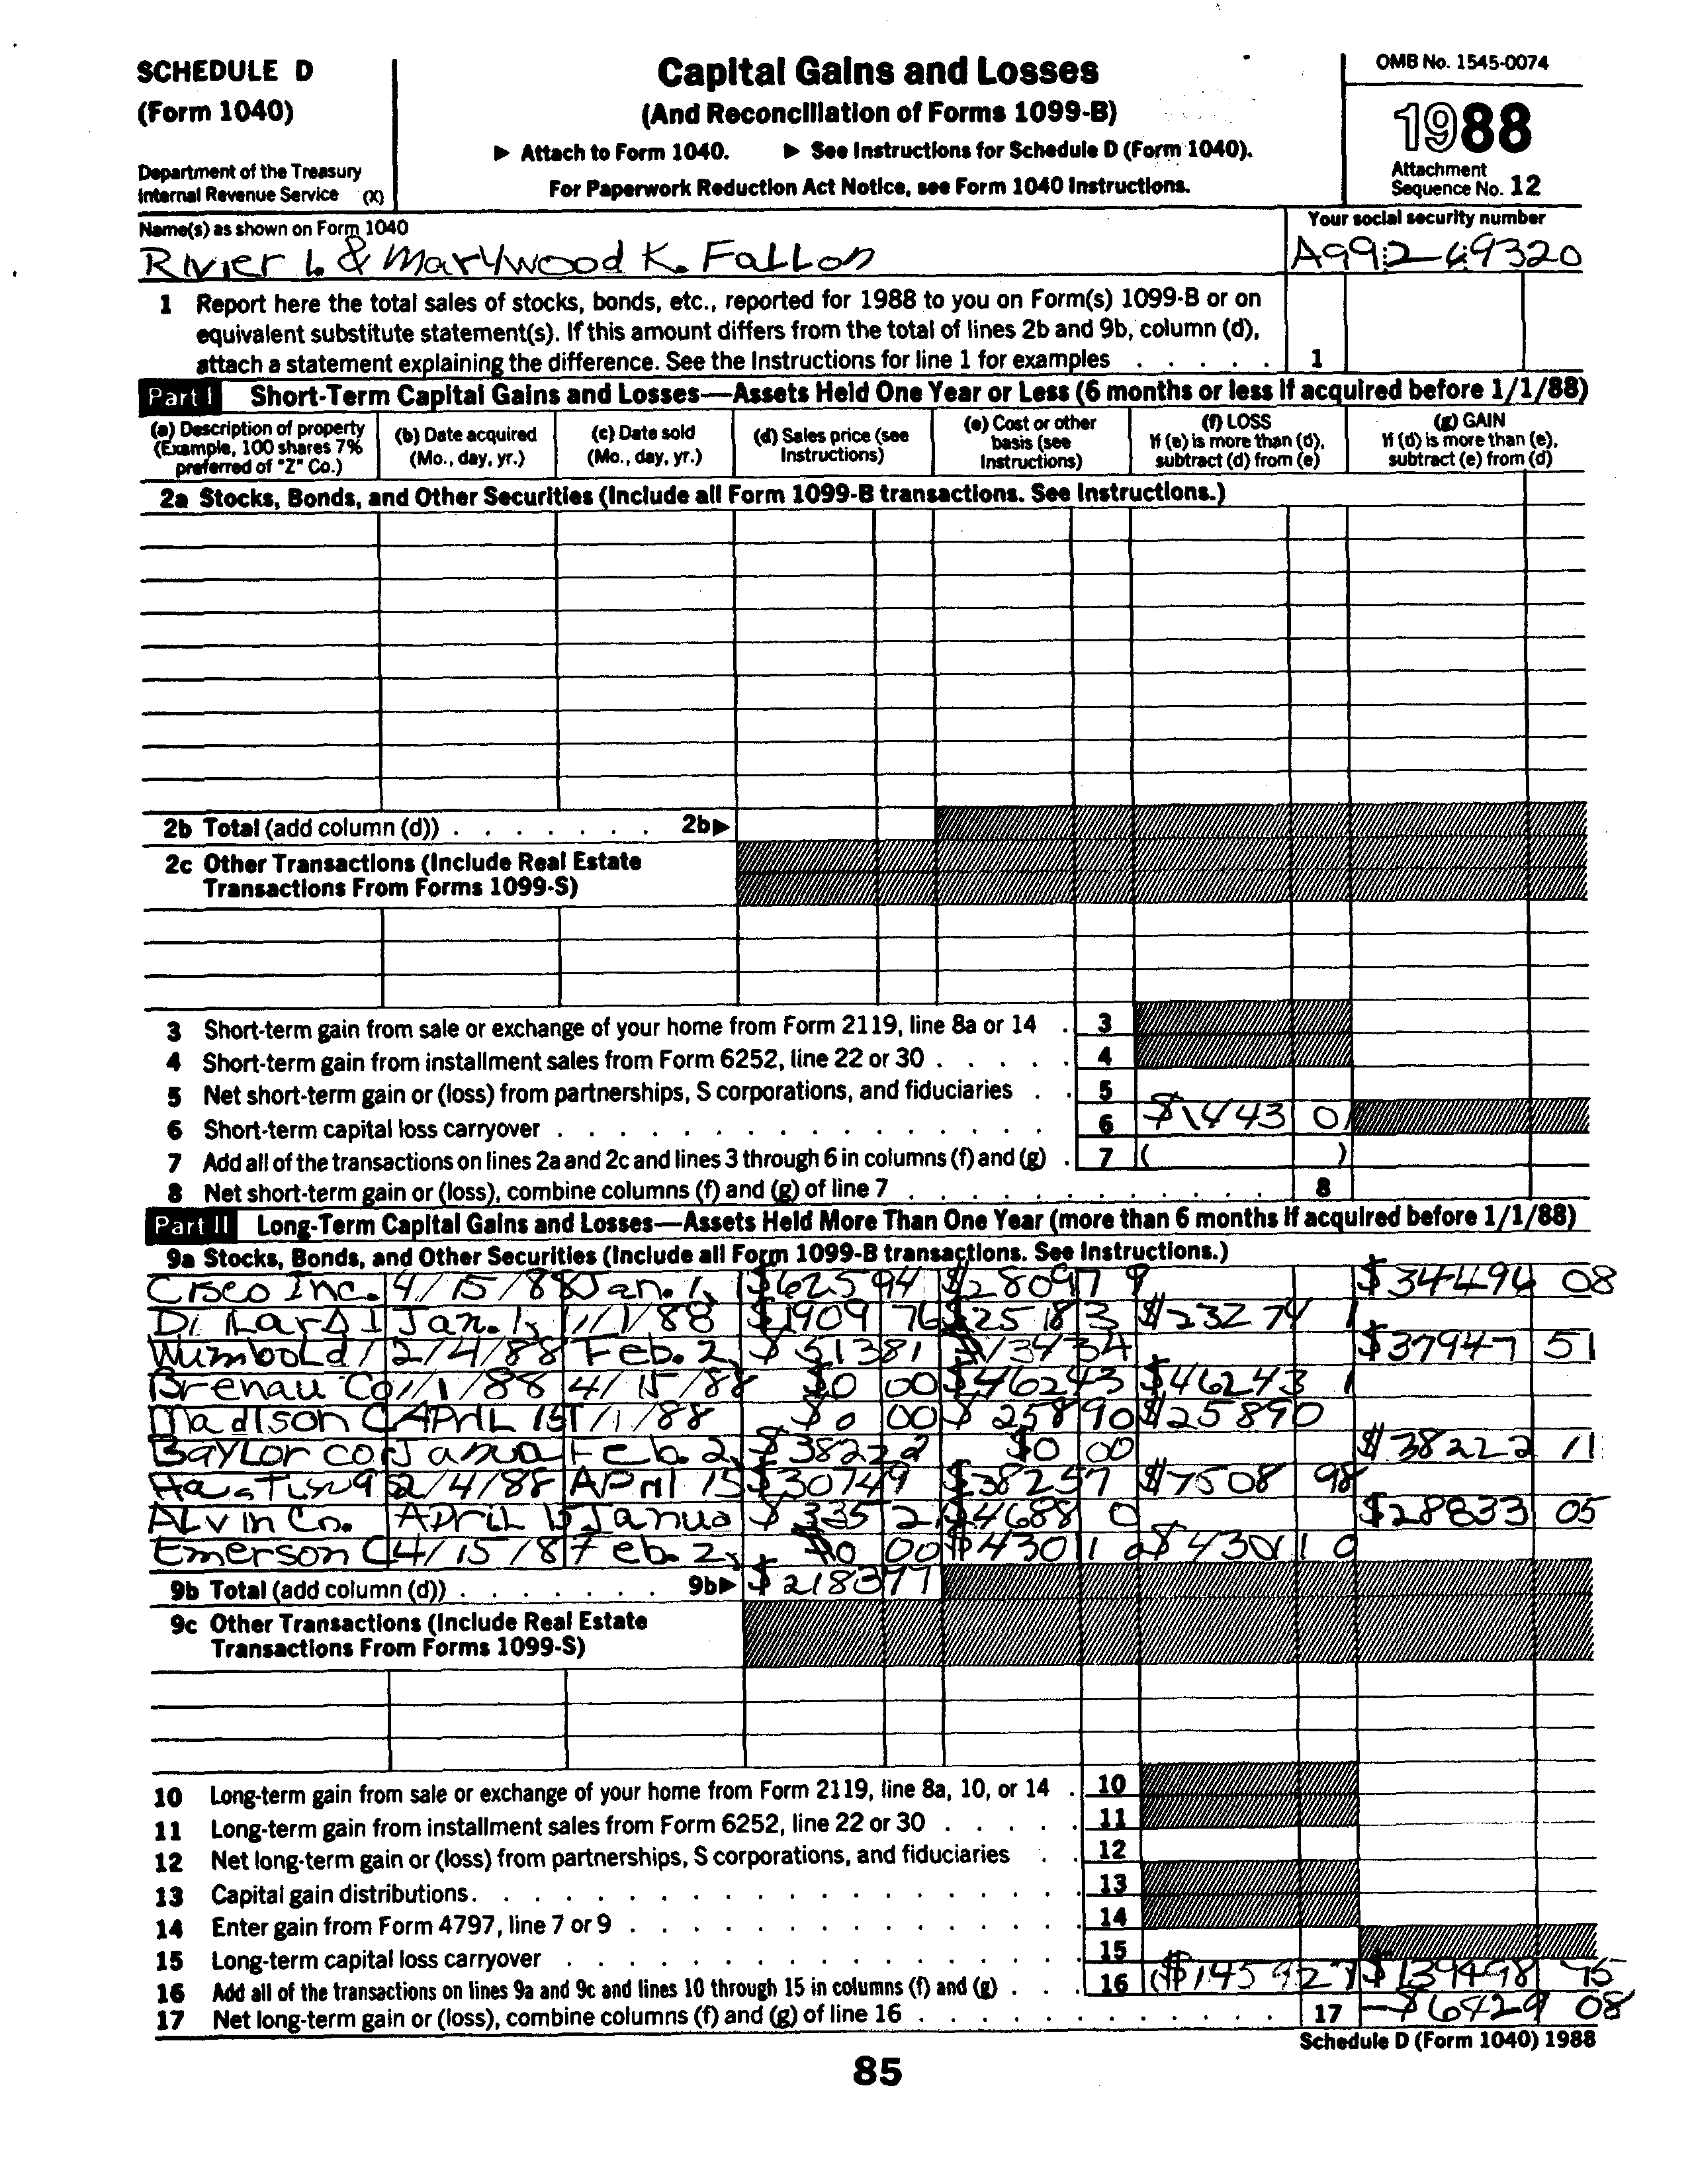 SCHEDULE D
(Form 1040)
Department of the Treasury
Internal Revenue Service (X)
Capital Gains and Losses
(And Reconciliation of Forms 1099-B)
▶ Attach to Form 1040. ▶ See Instructions for Schedule D (Form 1040).
For Paperwork Reduction Act Notice, see Form 1040 Instructions.
OMB No. 1545-0074
1988
Attachment
Sequence No. 12
Name(s) as shown on Form 1040
Rivier L. & Marywood K. Fallon
Your social security number
1 Report here the total sales of stocks, bonds, etc., reported for 1988 to you on Form(s) 1099-B or on
equivalent substitute statement(s). If this amount differs from the total of lines 2b and 9b, column (d),
attach a statement explaining the difference. See the Instructions for line 1 for examples . . . . . 1
Part I Short-Term Capital Gains and Losses—Assets Held One Year or Less (6 months or less if acquired before 1/1/88)
(a) Description of property
(Example, 100 shares 7%
preferred of "Z" Co.)
(b) Date acquired
(Mo., day, yr.)
(c) Date sold
(Mo., day, yr.)
(d) Sales price (see
Instructions)
(e) Cost or other
basis (see
Instructions)
(f) LOSS
If (e) is more than (d),
subtract (d) from (e)
(g) GAIN
If (d) is more than (e),
subtract (e) from (d)
2a Stocks, Bonds, and Other Securities (Include all Form 1099-B transactions. See Instructions.)
2b Total (add column (d)) . . . . . . . 2b▶
2c Other Transactions (Include Real Estate
Transactions From Forms 1099-S)
3 Short-term gain from sale or exchange of your home from Form 2119, line 8a or 14 . 3
4 Short-term gain from installment sales from Form 6252, line 22 or 30 . . . . . 4
5 Net short-term gain or (loss) from partnerships, S corporations, and fiduciaries . . 5
6 Short-term capital loss carryover . . . . . . . . . . . . . . . . 6 $1443 0
7 Add all of the transactions on lines 2a and 2c and lines 3 through 6 in columns (f) and (g) . 7 ( )
8 Net short-term gain or (loss), combine columns (f) and (g) of line 7 . . . . . . . . . . . 8
Part II Long-Term Capital Gains and Losses—Assets Held More Than One Year (more than 6 months if acquired before 1/1/88)
9a Stocks, Bonds, and Other Securities (Include all Form 1099-B transactions. See Instructions.)
Cisco Inc. 4/15/88 Jan. 1, $62594 $28097 9 $34496 08
Jan. 1, 1/1/88 $1909 76 $25183 $23274 1
Wumbold 2/4/88 Feb. 2, $51381 $13434 $37947 51
Brenau Co 1/1/88 4/15/88 $0 00 $46243 $46243 1
Madison C April 15 1/1/88 $0 00 $25890 $25890
Baylor co Janua Feb. 2, $38222 $0 00 $38222 11
2/4/88 April 15 $30749 $38257 $7508 98
Alvin Co. April 15 Janua $335 2 $4688 0 $28833 05
Emerson C 4/15/8 Feb. 2, $0 00 $43011 0 $43011 0
9b Total (add column (d)) . . . . . . . 9b▶ $218377
9c Other Transactions (Include Real Estate
Transactions From Forms 1099-S)
10 Long-term gain from sale or exchange of your home from Form 2119, line 8a, 10, or 14 . 10
11 Long-term gain from installment sales from Form 6252, line 22 or 30 . . . . . 11
12 Net long-term gain or (loss) from partnerships, S corporations, and fiduciaries . . 12
13 Capital gain distributions . . . . . . . . . . . . . . . . . . 13
14 Enter gain from Form 4797, line 7 or 9 . . . . . . . . . . . . . 14
15 Long-term capital loss carryover . . . . . . . . . . . . . . . 15
16 Add all of the transactions on lines 9a and 9c and lines 10 through 15 in columns (f) and (g) . . . 16 ($145927) $139498 75
17 Net long-term gain or (loss), combine columns (f) and (g) of line 16 . . . . . . . . . . . 17 -$6429 08
Schedule D (Form 1040) 1988
85